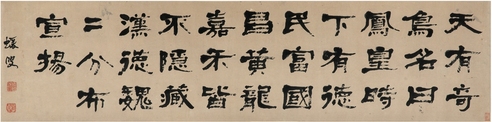 天有奇
鳥名曰
鳳皇時
下有德
民富國
昌黃龍
嘉禾皆
不隱藏
漢德魏
二分布
宣揚
蝯叟